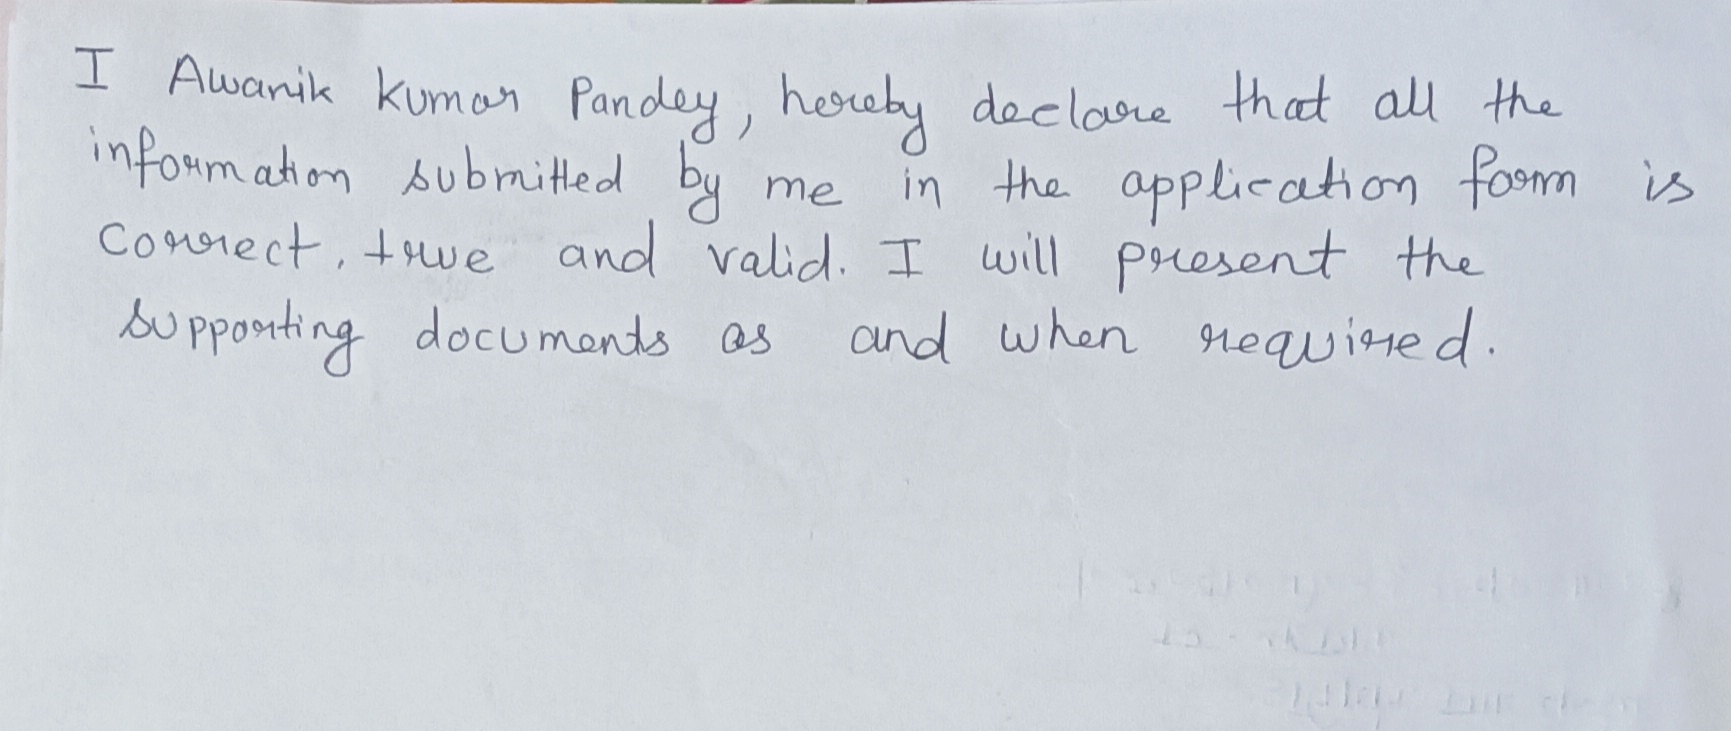 I Awanik Kumar Pandey, hereby declare that all the
information submitted by me in the application form is
correct, true and valid. I will present the
supporting documents as and when required.